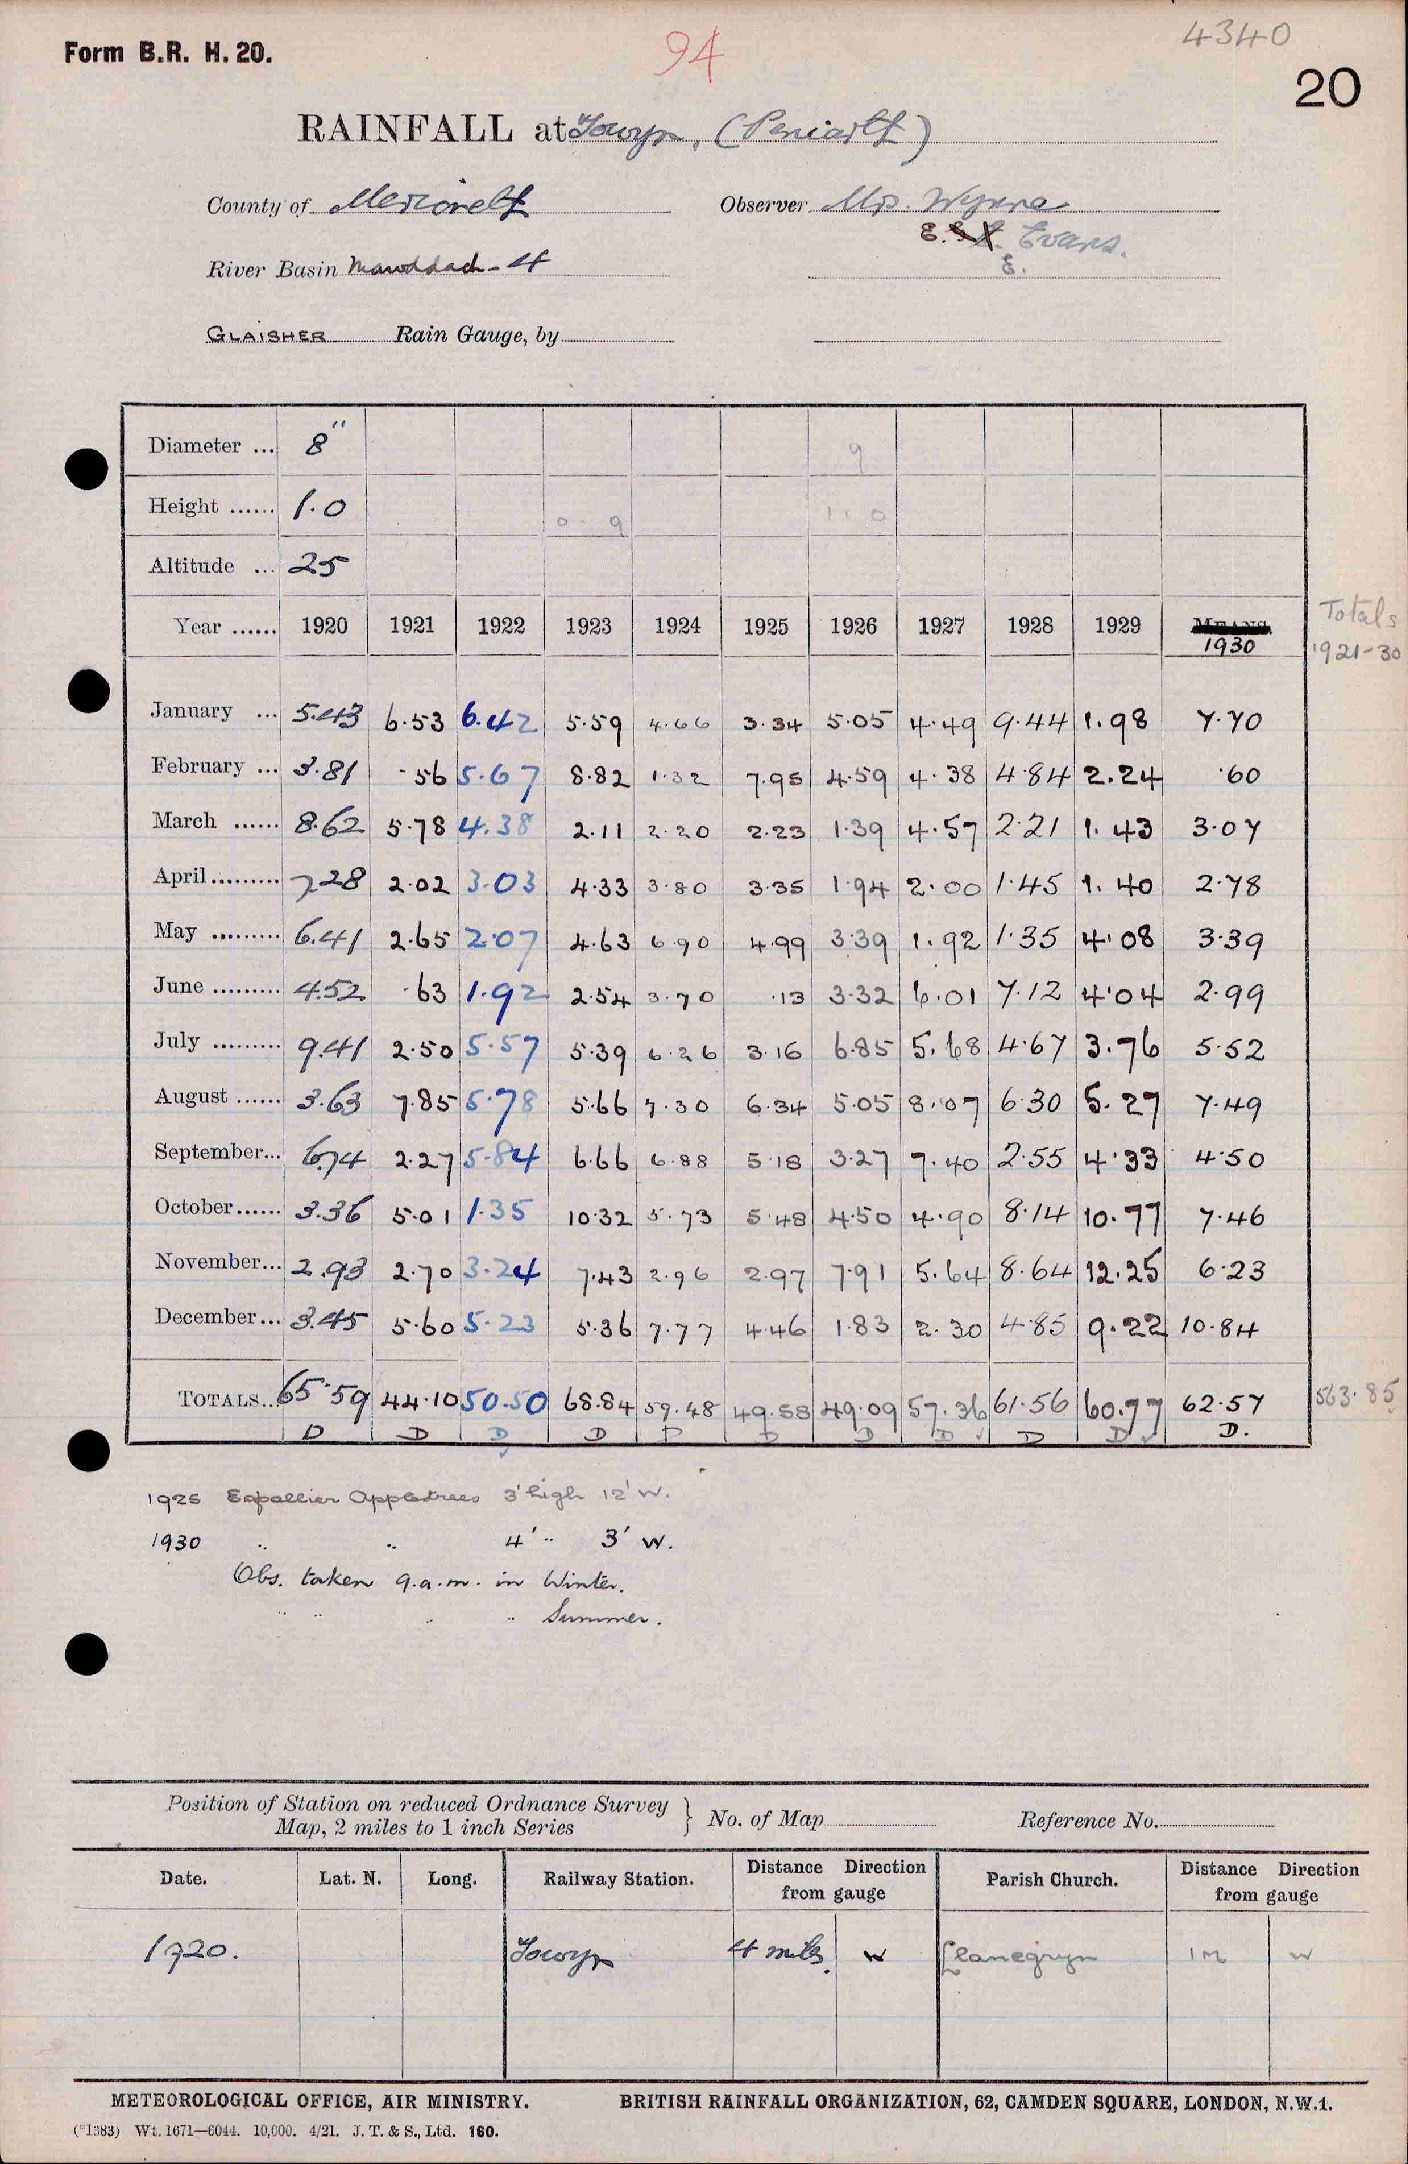 Form B.R. H. 20.
94
4340
20
RAINFALL at Towyn, (Peniarth)
County of Merioneth Observer Mrs. Wynne
E. E. Evans.
River Basin Mawddach - 4
GLAISHER Rain Gauge, by
Diameter ... 8" 9
Height ...... 1.0 0.9 1.0
Altitude ... 25
Year ...... 1920 1921 1922 1923 1924 1925 1926 1927 1928 1929 MEANS 1930 Totals 1921-30
January ... 5.43 6.53 6.42 5.59 4.66 3.34 5.05 4.49 9.44 1.98 7.70
February ... 3.81 .56 5.67 8.82 1.32 7.95 4.59 4.38 4.84 2.24 .60
March ...... 8.62 5.78 4.38 2.11 2.20 2.23 1.39 4.57 2.21 1.43 3.07
April......... 7.28 2.02 3.03 4.33 3.80 3.35 1.94 2.00 1.45 1.40 2.78
May ......... 6.41 2.65 2.07 4.63 6.90 4.99 3.39 1.92 1.35 4.08 3.39
June ......... 4.52 .63 1.92 2.54 3.70 .13 3.32 6.01 7.12 4.04 2.99
July ......... 9.41 2.50 5.57 5.39 6.26 3.16 6.85 5.68 4.67 3.76 5.52
August ...... 3.63 7.85 5.78 5.66 7.30 6.34 5.05 8.07 6.30 5.27 7.49
September... 6.74 2.27 5.84 6.66 6.88 5.18 3.27 7.40 2.55 4.33 4.50
October...... 3.36 5.01 1.35 10.32 5.73 5.48 4.50 4.90 8.14 10.77 7.46
November... 2.93 2.70 3.24 7.43 2.96 2.97 7.91 5.64 8.64 12.25 6.23
December... 3.45 5.60 5.23 5.36 7.77 4.46 1.83 2.30 4.85 9.22 10.84
TOTALS... 65.59 44.10 50.50 68.84 59.48 49.58 49.09 57.36 61.56 60.77 62.57 563.85
D D D D D D D D D D D.
1925 Espallier Appletrees 3' high 12' W.
1930 " " 4' " 3' W.
Obs. taken 9.a.m. in Winter.
" " " " Summer.
Position of Station on reduced Ordnance Survey
Map, 2 miles to 1 inch Series } No. of Map Reference No.
Date. Lat. N. Long. Railway Station. Distance Direction from gauge Parish Church. Distance Direction from gauge
1920. Towyn 4 miles. W Llanegryn 1 M W
METEOROLOGICAL OFFICE, AIR MINISTRY. BRITISH RAINFALL ORGANIZATION, 62, CAMDEN SQUARE, LONDON, N.W.1.
(*1383) Wt. 1671—6044. 10,000. 4/21. J. T. & S., Ltd. 160.